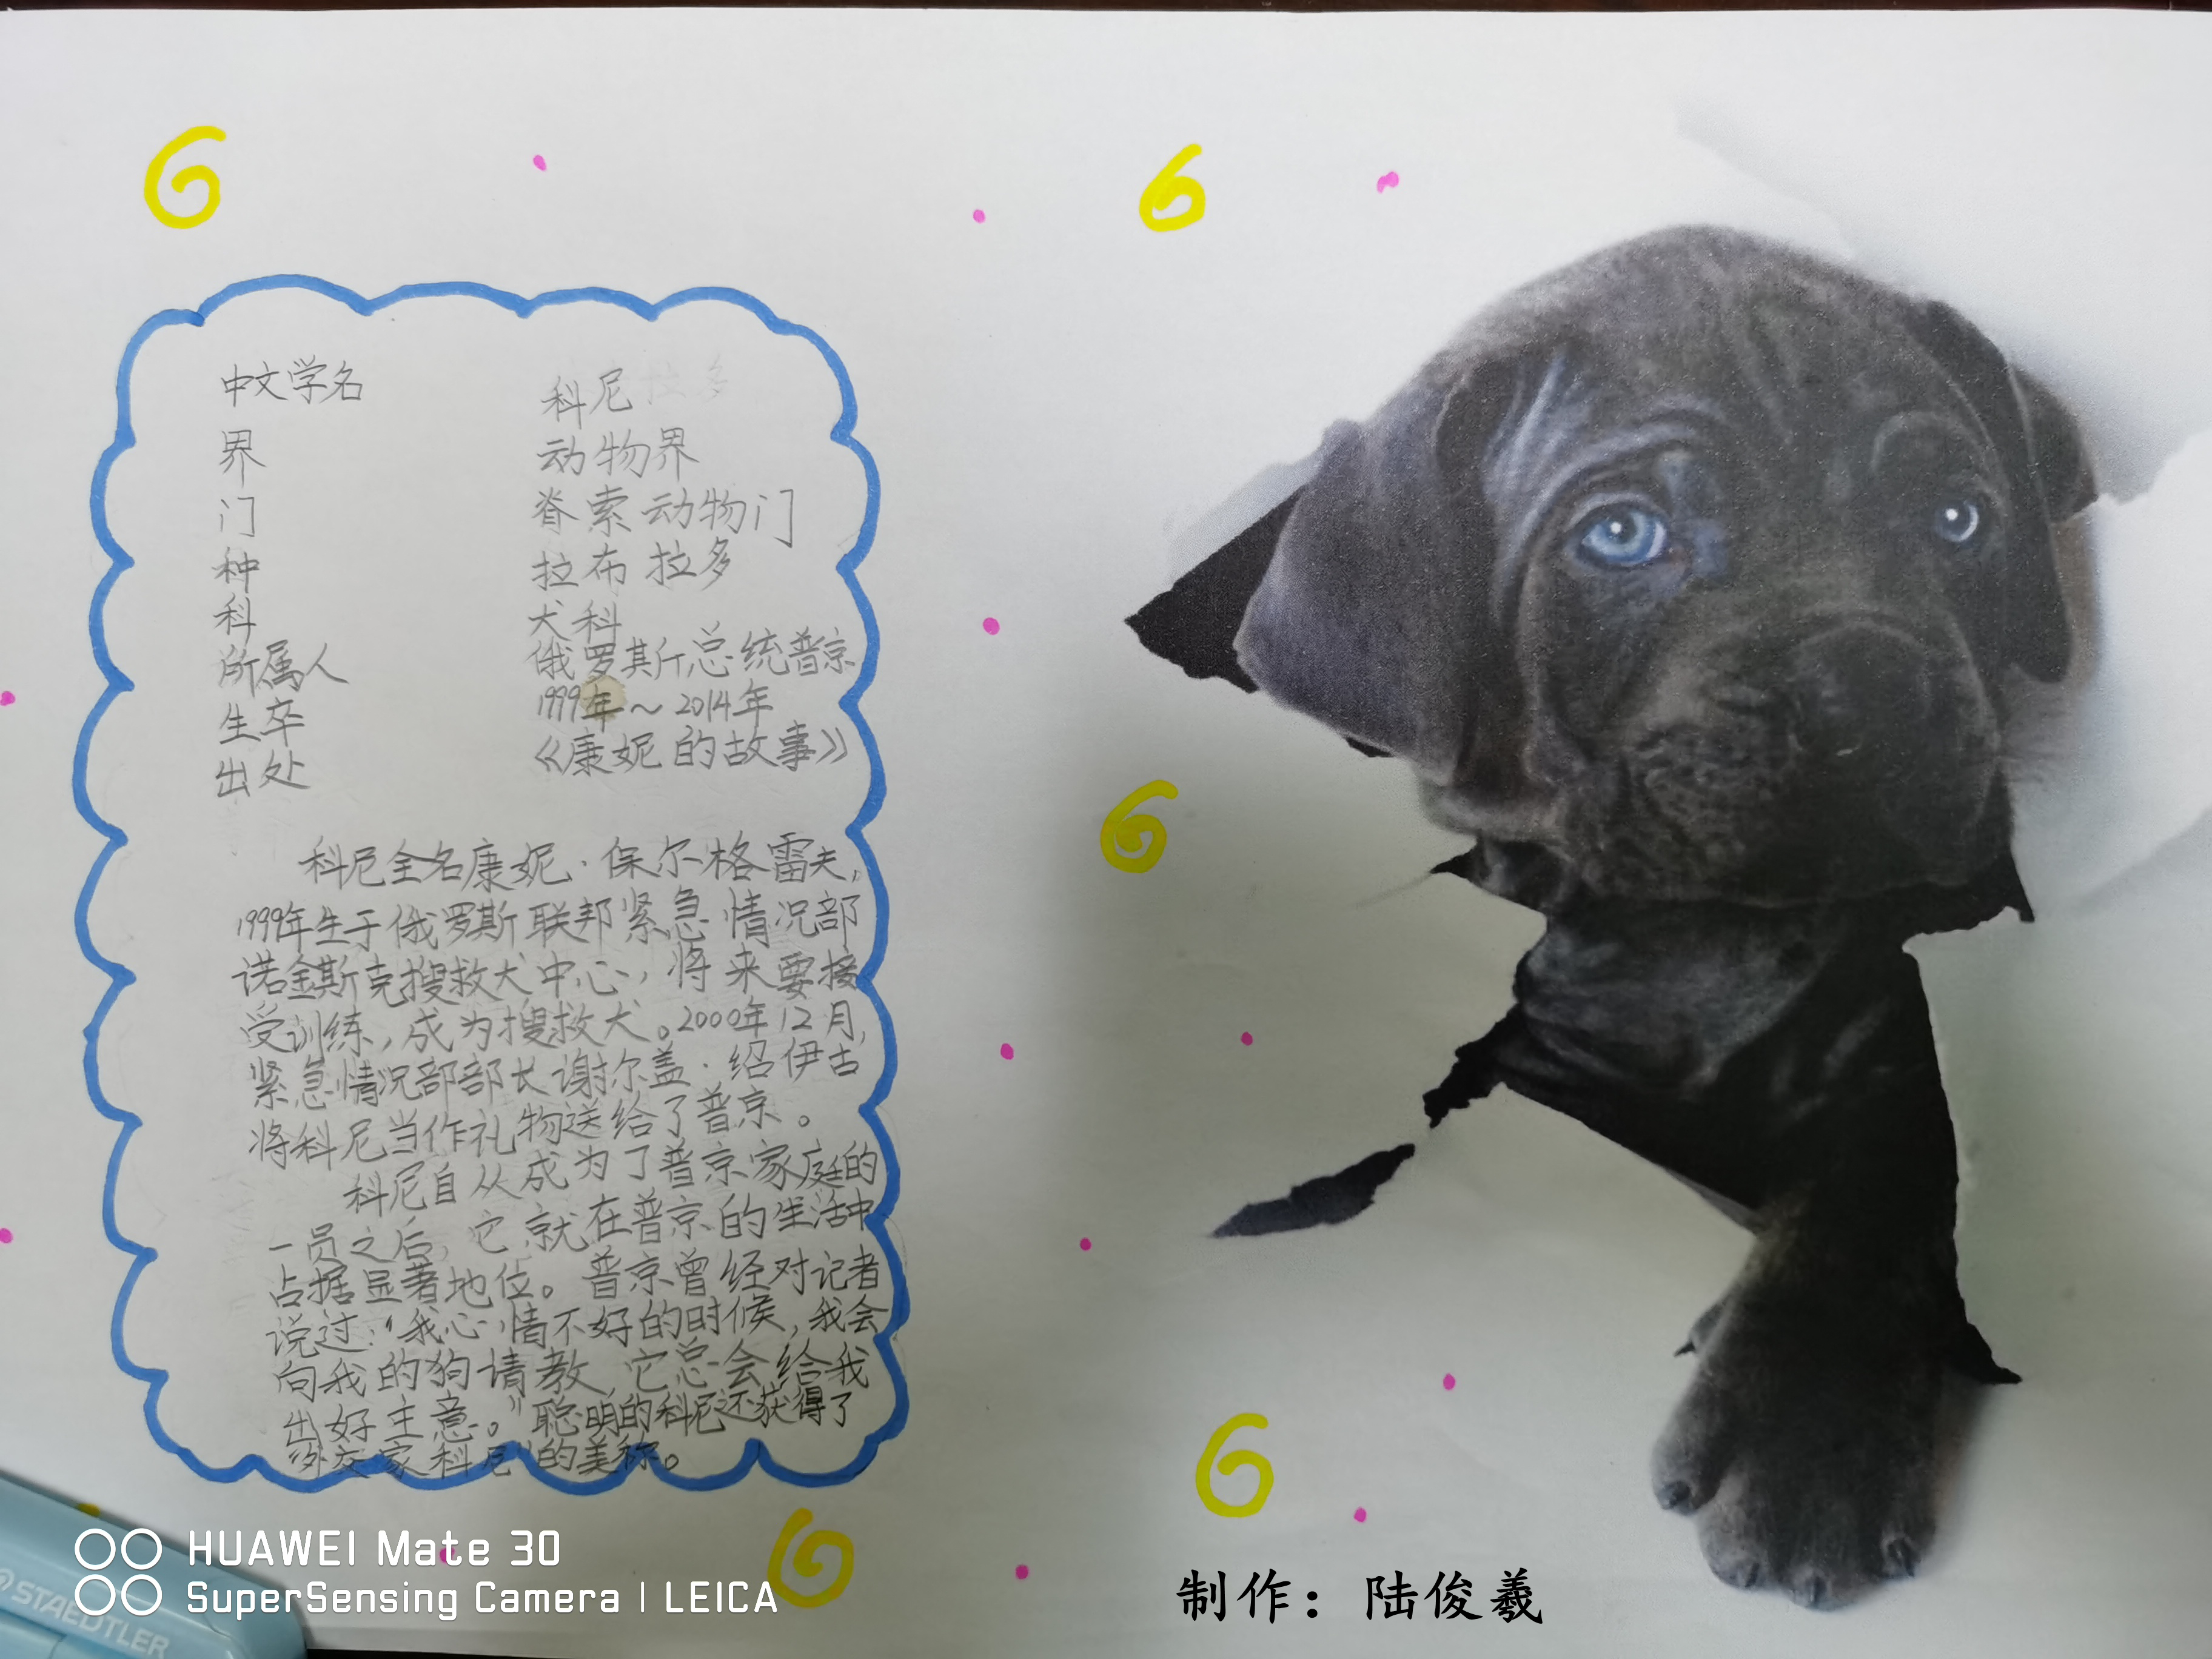 6
6
中文学名 科尼
界 动物界
门 脊索动物门
种 拉布拉多
科 犬科
所属人 俄罗斯总统普京
生卒 1999年～2014年
出处 《康妮的故事》
科尼全名康妮·保尔格雷夫,
1999年生于俄罗斯联邦紧急情况部
诺金斯克搜救犬中心,将来要接
受训练,成为搜救犬。2000年12月,
紧急情况部部长谢尔盖·绍伊古
将科尼当作礼物送给了普京。
科尼自从成为了普京家庭的
一员之后,它就在普京的生活中
占据显著地位。普京曾经对记者
说过:“我心情不好的时候,我会
向我的狗请教,它总会给我
出好主意。”聪明的科尼还获得了
“外交家科尼”的美称。
6
6
6
HUAWEI Mate 30
SuperSensing Camera | LEICA
STAEDTLER
制作：陆俊羲